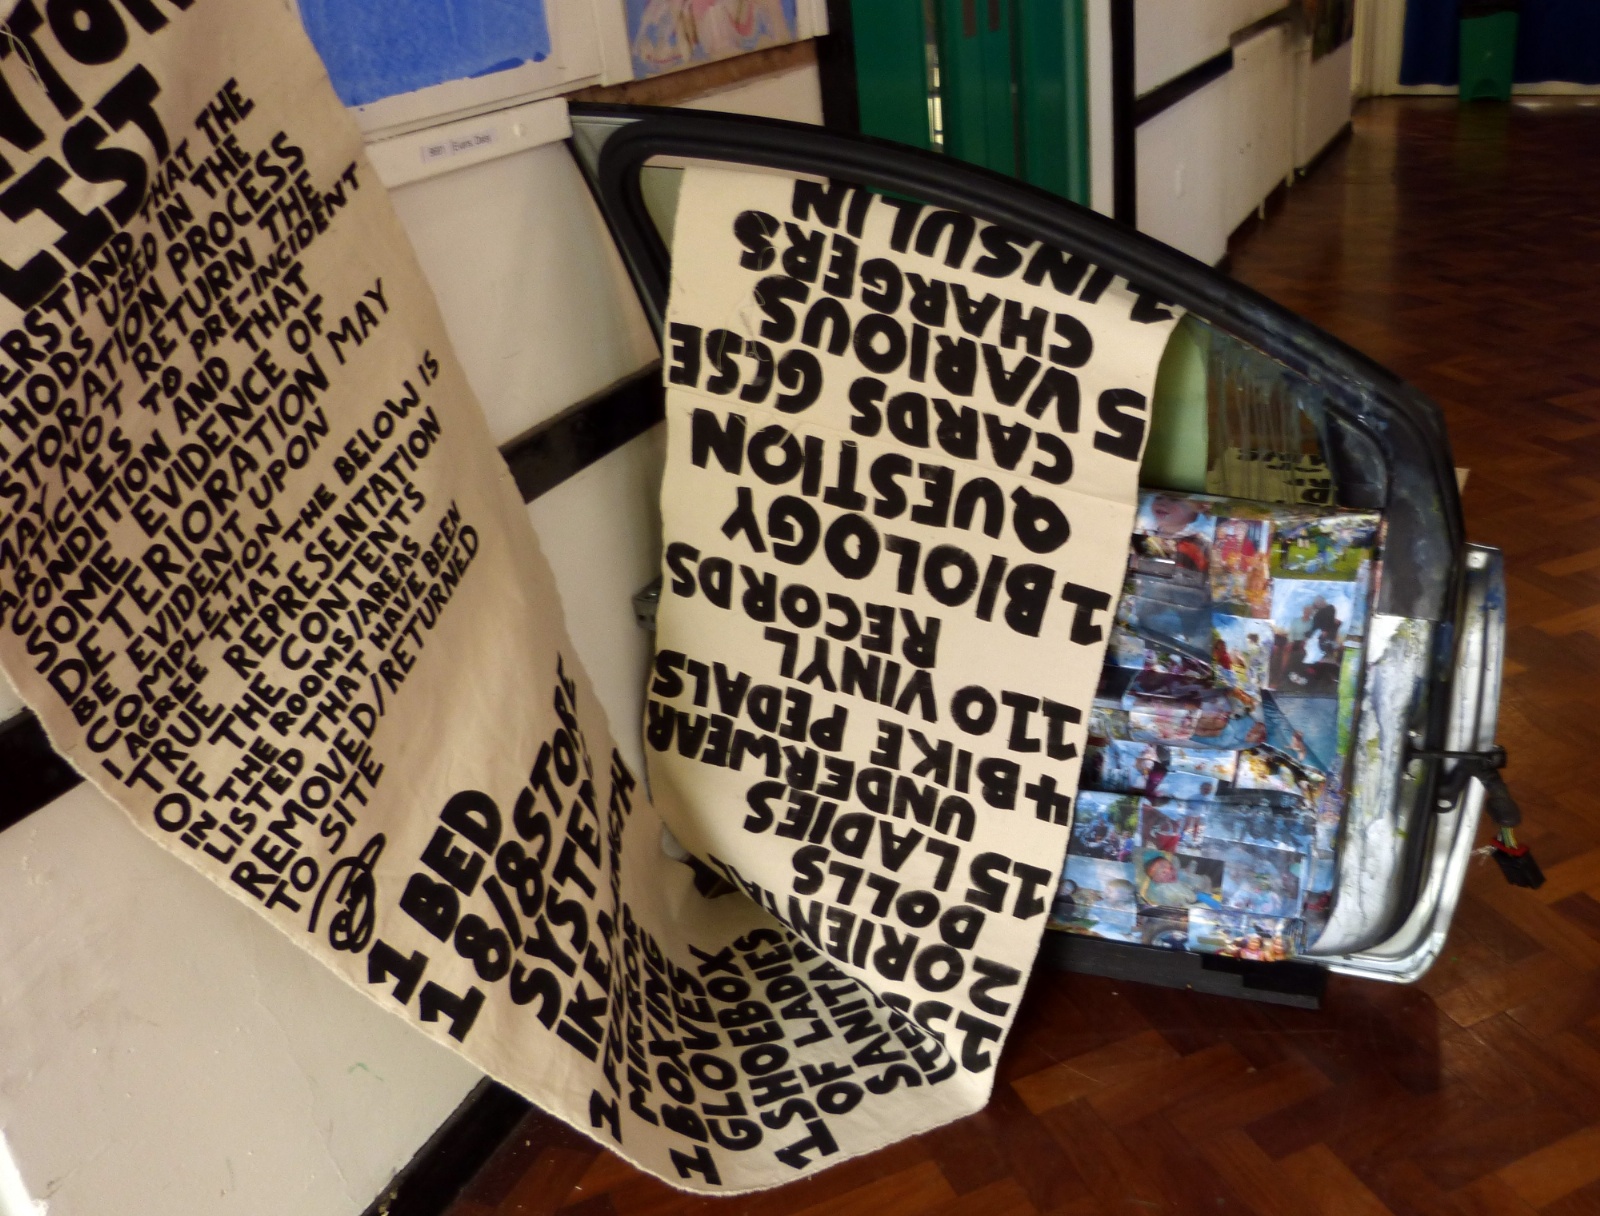 LIST
ERSTAND THAT THE
THODS USED IN THE
STORATION PROCESS
MAY NOT RETURN THE
ARTICLES TO PRE-INCIDENT
CONDITION AND THAT
SOME EVIDENCE OF
DETERIORATION MAY
BE EVIDENT UPON
COMPLETION
I AGREE THAT THE BELOW IS
TRUE REPRESENTATION
OF THE CONTENTS
IN THE ROOMS/AREAS
LISTED THAT HAVE BEEN
REMOVED/RETURNED
TO SITE
1 BED
1 8/8 STORE
SYSTEM
IKEA
1
MIRROR
1 BOXING
GLOVES
1 SHOEBOX
OF LADIES
SANITARY
2 ORIENTAL
DOLLS
15 LADIES
UNDERWEAR
4 BIKE PEDALS
110 VINYL
RECORDS
1 BIOLOGY
QUESTION
CARDS GCSE
5 VARIOUS
CHARGERS
1 INSULIN